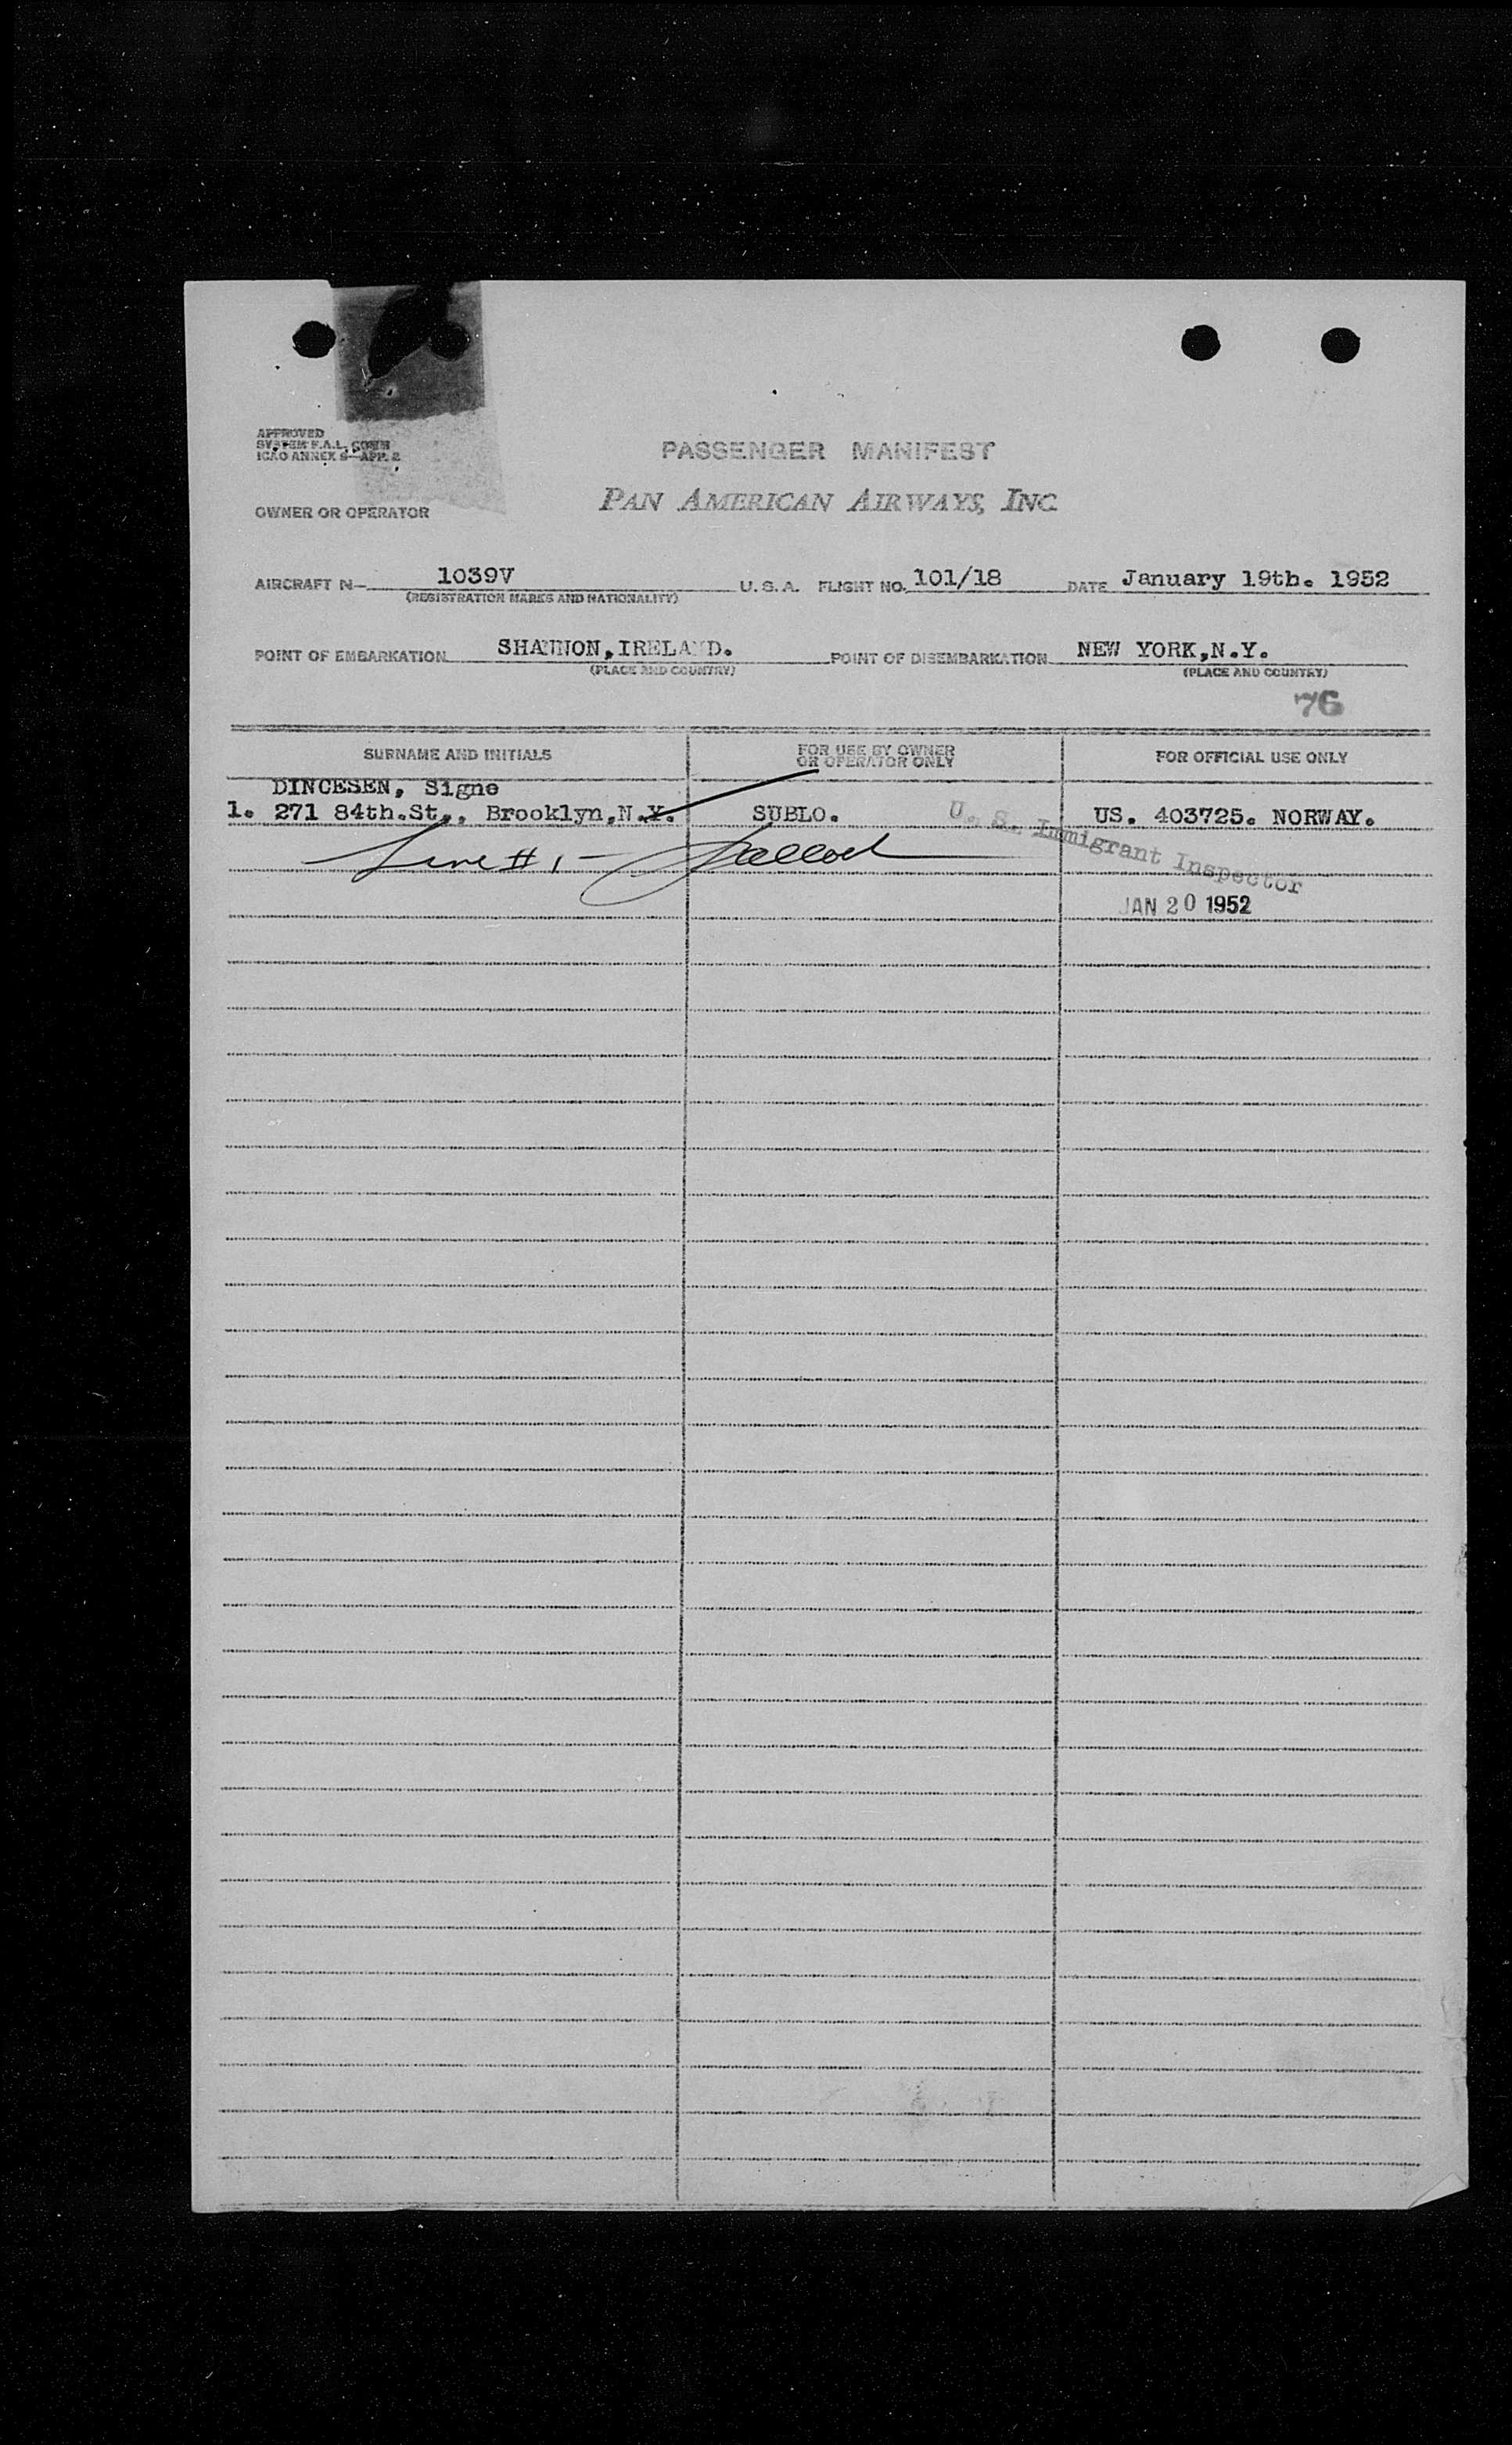 APPROVED
SYSTEM F.A.L. COMM
ICAO ANNEX 9—APP. 2
PASSENGER MANIFEST
OWNER OR OPERATOR PAN AMERICAN AIRWAYS, INC.
AIRCRAFT N— 1039V U.S.A. FLIGHT NO. 101/18 DATE January 19th. 1952
(REGISTRATION MARKS AND NATIONALITY)
POINT OF EMBARKATION SHANNON, IRELAND. POINT OF DISEMBARKATION NEW YORK, N.Y.
(PLACE AND COUNTRY) (PLACE AND COUNTRY)
76
SURNAME AND INITIALS FOR USE BY OWNER OR OPERATOR ONLY FOR OFFICIAL USE ONLY
DINCESEN, Signe
1. 271 84th.St., Brooklyn,N.Y. SUBLO. US. 403725. NORWAY.
Line # 1 —
U. S. Immigrant Inspector
JAN 20 1952